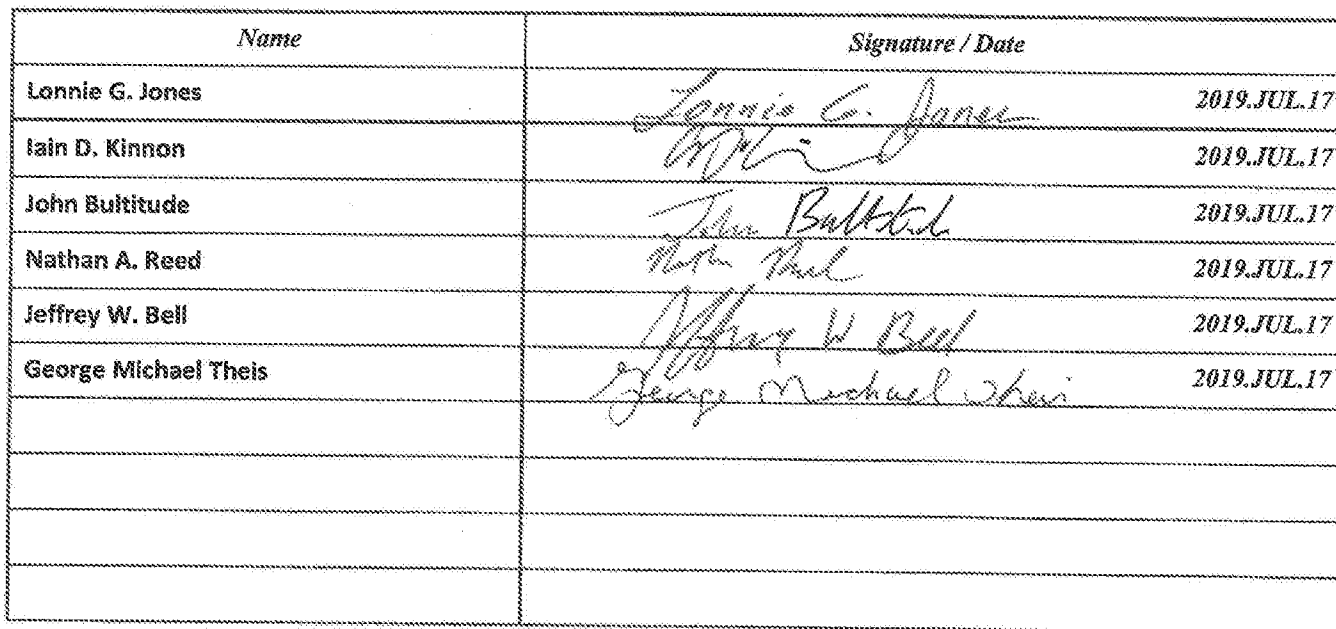 Name Signature / Date
Lonnie G. Jones Lonnie G. Jones 2019.JUL.17
Iain D. Kinnon 2019.JUL.17
John Bultitude John Bultitude 2019.JUL.17
Nathan A. Reed 2019.JUL.17
Jeffrey W. Bell Jeffrey W Bell 2019.JUL.17
George Michael Theis George Michael Theis 2019.JUL.17